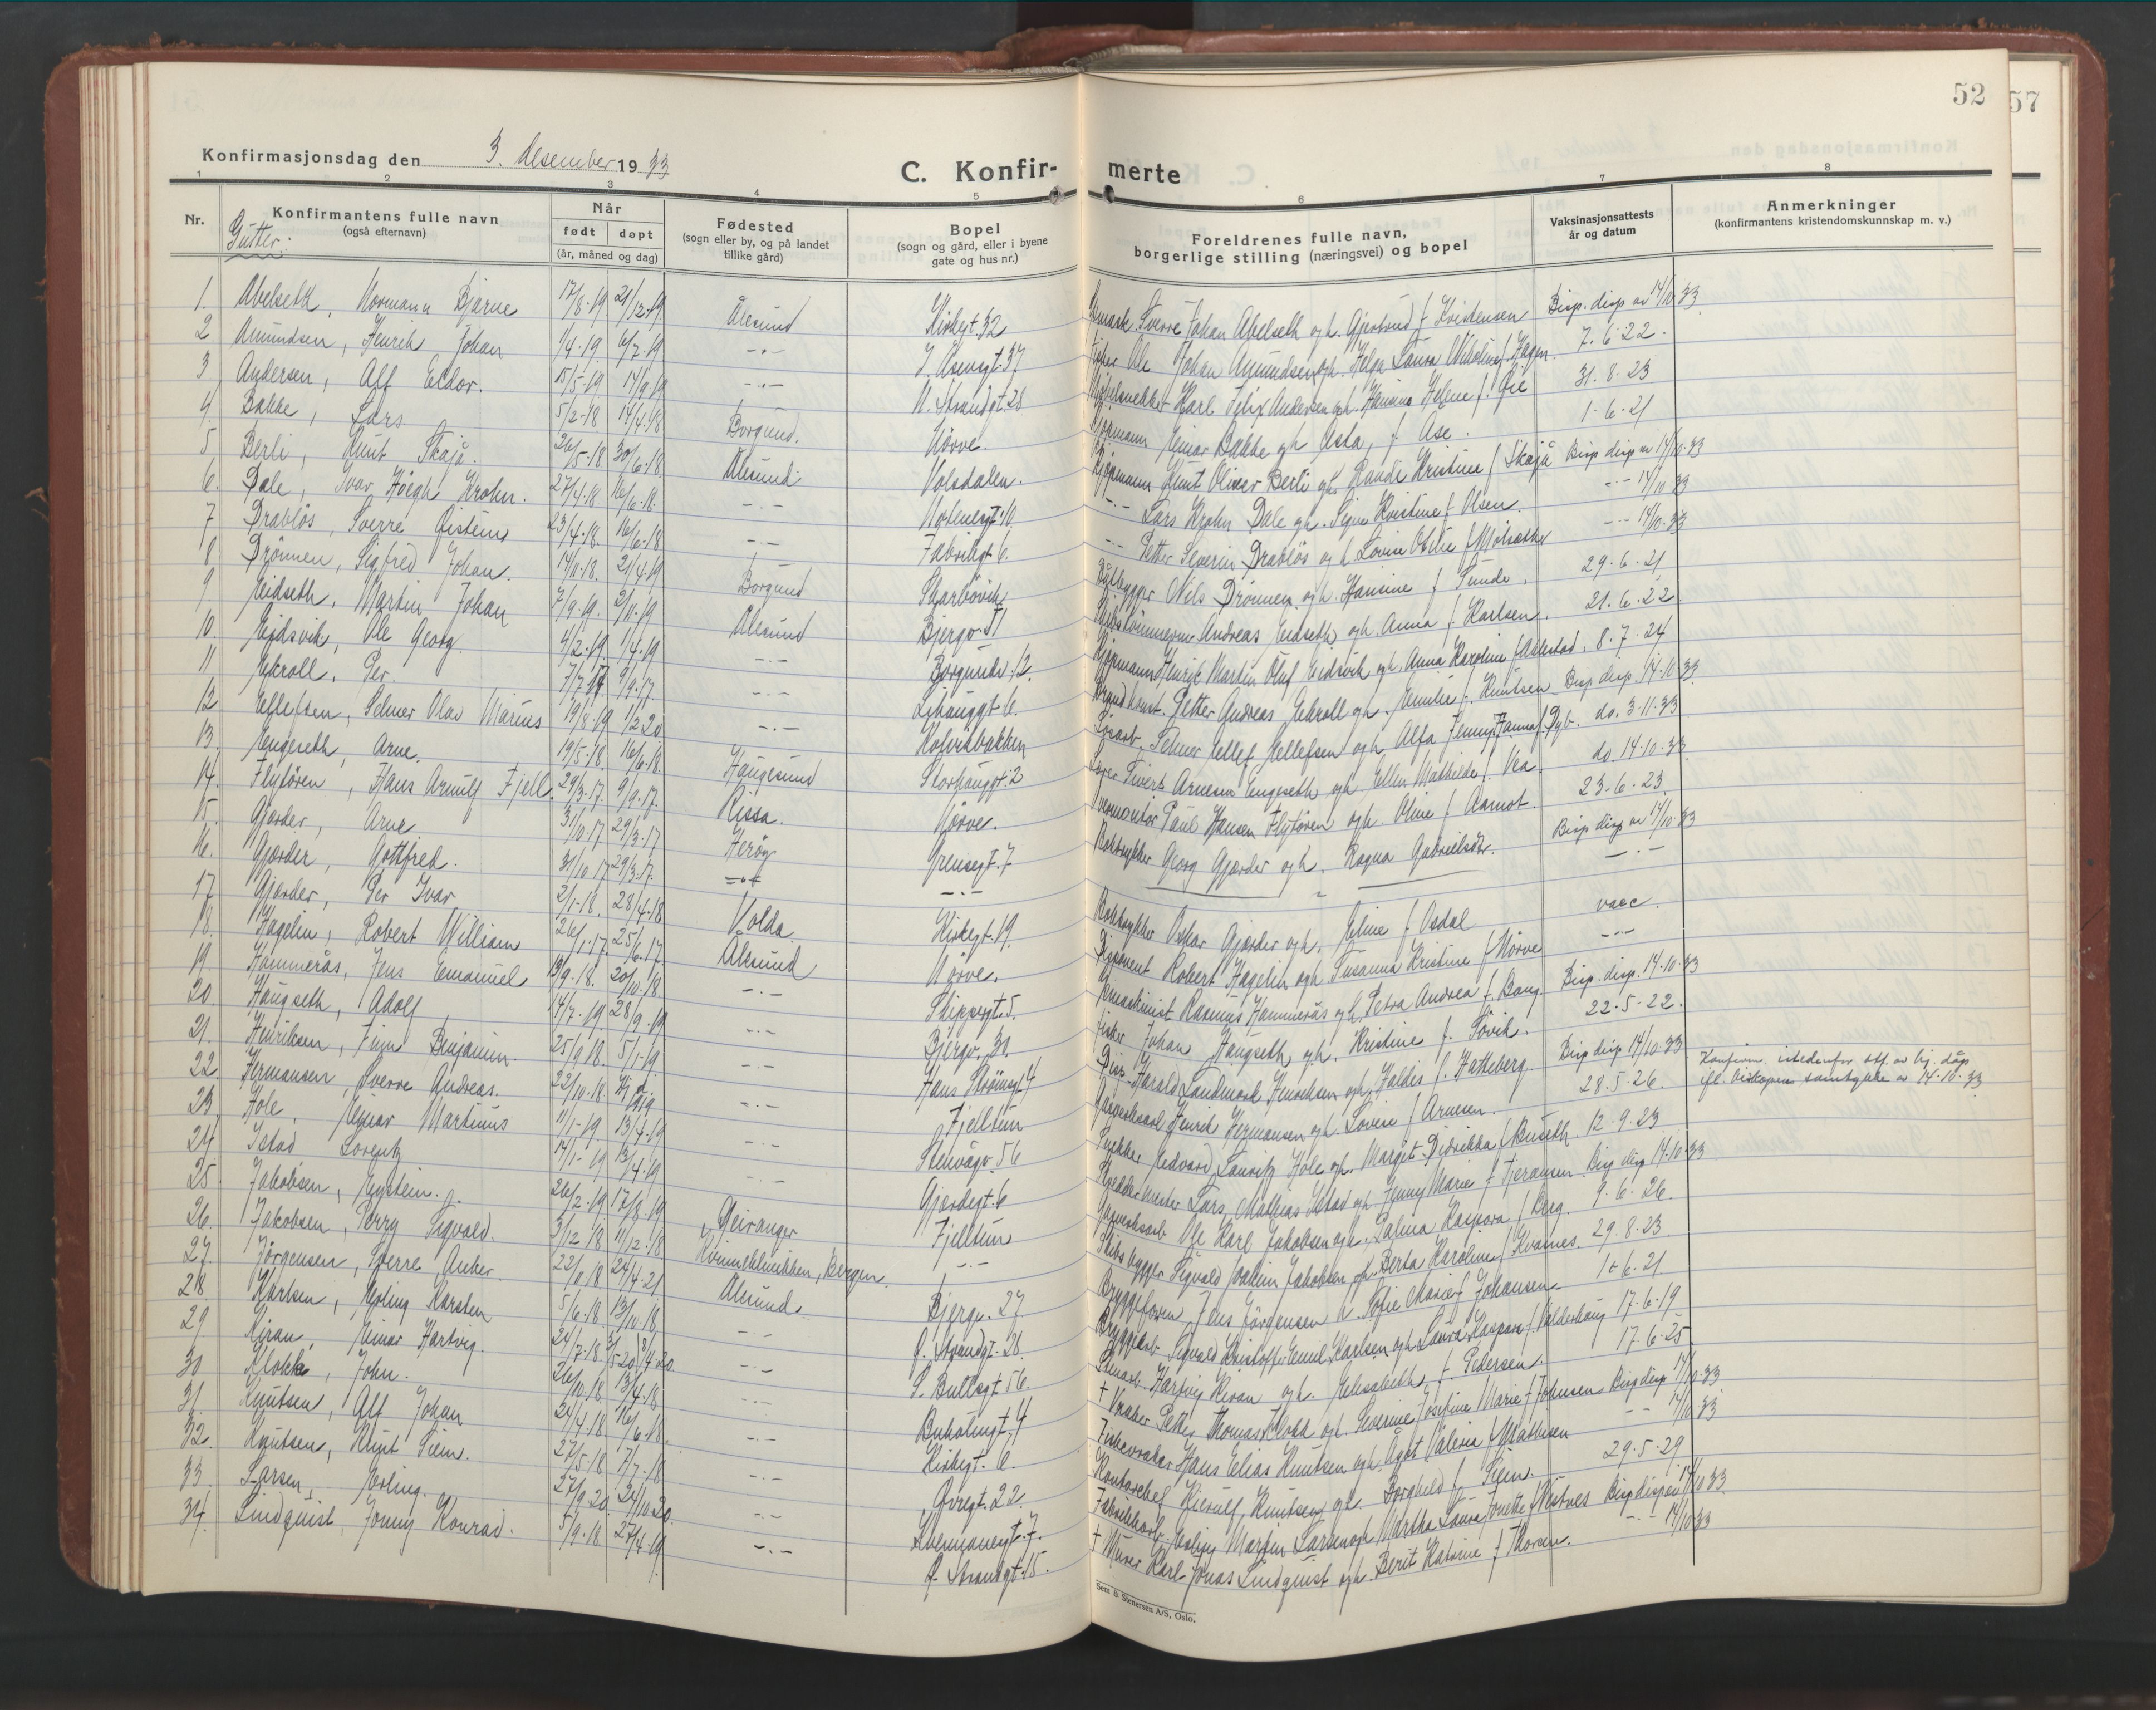 52
57
Konfirmasjonsdag den 3. desember 1933
C. Konfir-
merte
1 2 3 4 5 6 7 8
Nr.
Konfirmantens fulle navn
(også efternavn)
Når
født
døpt
(år, måned og dag)
Fødested
(sogn eller by, og på landet
tillike gård)
Bopel
(sogn og gård, eller i byene
gate og hus nr.)
Foreldrenes fulle navn,
borgerlige stilling (næringsvei) og bopel
Vaksinasjonsattests
år og datum
Anmerkninger
(konfirmantens kristendomskunnskap m. v.)
Gutter.
1. Abelseth, Normann Bjarne 17/8-19 21/12-19 Ålesund Kirkegt. 32 Sverre Johan Abelseth og h. Gjertrud f Kristensen Bisp. disp av 14/10 33
2 Amundsen, Henrik Johan 1/4-19 6/7-19 -"- 37 Ole Johan Amundsen og h. Helga Laura f. Hagen. 7.6.22.
3 Andersen, Alf Eldor. 15/5-19 14/9-19 -"- N. Strandgt. 28 Karl Felix Andersen og h. Hansina Helene f. Gil 31.8.23
4. Bakke, Lars 5/2-18 14/4-18 Borgund. Nørve. Kjøpmann Einar Bakke og h Asta, f. Åse. 1-6-21
5. Berli, Knut Skajå. 26/5-18 30/6-18. Ålesund Volsdalen. Kjøpmann Knut Oliver Berli og h. Kristine f Skajå Bisp disp av 14/10-33
6. Dale, Ivar Høegh Krohn. 27/4-18 16/6-18. -"- 10. -"- Lars Krohn Dale og h. Signe Kristine f Olsen. -"- 14/10 33
7 Drabløs, Sverre Øistein 23/4-18. 16/6-18 -"- Fabrikgt 6. -"- Petter Severin Drabløs og h Lovise -"- 14/10-33
8 Drønnen, Sigfred Johan. 14/11-18. 21/4-19 Borgund Skarbøvik Båtbygger Nils Drønnen og h. Hansine f Tunde. 29.6.21
9. Eidseth, Martin Johan 7/9-19. 2/11-19 Ålesund Bjergv. 51 Andreas Eidseth og h. Anna f Karlsen. 21.6.22
10. Eidsvik, Ole Georg. 4/2-19. 1/4-19 -"- Borgundv. 12. Kjøpmann Henrik Martin Oluf Eidsvik og h. Anna Karoline f Aklestad, 8.7.24
11 Ekroll, Per. 7/7-17 9/9-17 -"- Lihauggt 6. Petter Andreas Ekroll og h. Emilie f. Knutsen Bisp disp. 14-10-33
12 Ellefsen, Selmer Olav Marius 19/8-19 1/2-20 -"- Kolvikbakken Selmer Ellef Ellefsen og h. Alfa Jenny Hanna f. Dyb. do. 3-11-33
13. Engeseth, Arne. 19/5-18. 16/6-18 Haugesund Storhauggt 2 Sivert Arnesen Engeseth og h Ellen Mathilde f. Vea. do. 14-10-33
14. Flytøren, Hans Arnulf Fjell. 29/3-17. 9/9-17. Rissa. Nørve. Paul Hansen Flytøren og h Oline f Aarnot. 23-6-23.
15. Gjærder, Arne 31/10-17 29/3-17 Herøy Grensegt. 7 Boktrykker Georg Gjærder og h. Ragna Gabrielsdtr. Bisp disp av 14/10-33
16. Gjærder, Gottfred. 31/10 17 29/3-17 -"- -"- -"- -"-
17 Gjærder, Per Ivar 2/1-18. 28/4-18 Volda Kirkegt. 19. Boktrykker Oskar Gjærder og h. Eline f Osdal vacc.
18. Hagelin, Robert William 26/1-17. 25/6-17. Ålesund Nørve. Disponent Robert Hagelin og h Susanna Kristine f Nørve -"-
19. Hammerås, Jens Emanuel 13/9-18. 20/10-18 -"- Skippergt. 5. Rasmus Hammerås og h. Petra Andrea f. Bang. Bisp. disp. 14-10-33
20. Haugseth, Adolf 14/7-19. 28/9-19 -"- Bjergv. 30. Fisker Johan Haugseth og h. Kristine f. Søvik. 22-5-22.
21. Henriksen, Finn Benjamin. 25/9 18. 5/1-19 -"- Hans Strømsgt 4 Disp. Harald Landmark Henriksen og h. Haldis f. Hatteberg Bisp disp 14/10-33 Konfirm. istedenfor
ifl. biskopens samtykke av 14-10-33
22. Hermansen, Sverre Andreas. 22/10-18. -"- Fjelltun Henrik Hermansen og h. Lovise f Arnesen. 28.5.26.
23. Hole, Einar Martinus 11/1-19 13/4-19 -"- Stenvågv. 56 Snekker Edvard Lauritz Hole og h. Margit Didrikka f Buseth. 12.9.23
24 Istad Lorentz 14/1-19 13/4-19 -"- Gjærdegt. 6 Lars Mathias Istad og h. Jenny Marie f Bisp disp 14-10-33
25. Jakobsen, Øystein. 26/2-19 17/8-19 Geiranger Fjelltun Ole Karl Jakobsen og h. Palma Kaspara f Berg. 9.6.26.
26. Jakobsen, Perry Sigvald. 3/12-18 11/12-18 Kvinneklinikken, Bergen -"- Skibsbygger Sigvald Joakim Jakobsen og h. Berta Karoline f Kvarnes. 29.8.23
27. Jørgensen, Sverre Anker. 22/11-18 24/4-21 Ålesund. Bjergv. 27 Bryggeform. Jens Jørgensen h. Sofie Marie f Johansen. 1-6-21
28. Karlsen, Erling Karsten 5/6-18. 13/10-18 -"- Ø. Strandgt. 28. Bryggearb. Sigvald Kristoffer Emil Karlsen og h. Laura Kaspara f Valderhaug 17-6-19
29 Kiran, Einar Hartvig. 24/7-18 -"- S. Bullsgt 56. Hartvig Kiran og h. Elisabeth f. Pedersen. 17.6-25
30 Klokk, John. 26/10-18. 13/4-18 -"- Buholmgt. 4 + Vraker Petter Thomas Klokk og h. Severine Josefine Marie f Johnsen Bisp disp 14/10-33
31. Knutsen, Alf Johan 24/4-18. 16/6-18. -"- Kirkegt. 6. Fiskevraker Hans Elias Knutsen og h. Ågot Valeria f Mathisen -"- 14/10-33
32. Knutsen, Knut Siem. 27/5-18 7/7-18 -"- Øvregt. 22. Kontorchef Hierulf Knutsen og h. Borghild f Siem. 29.5-29
33. Larsen, Erling. 27/9-20. 24/10-20. -"- 7. Fabrikkarb. Erling Martin Larsen og h Martha Laura Jonette f Vestnes Bisp disp av 14/10 33
34. Lindquist, Jonny Konrad. 5/9-18. 27/4-19. -"- Ø. Strandgt. 15. + Murer Karl Jonas Lindquist og h. Berit Katrine f Thorsen. -"- 14/10-33
Sem & Stenersen A/S, Oslo.